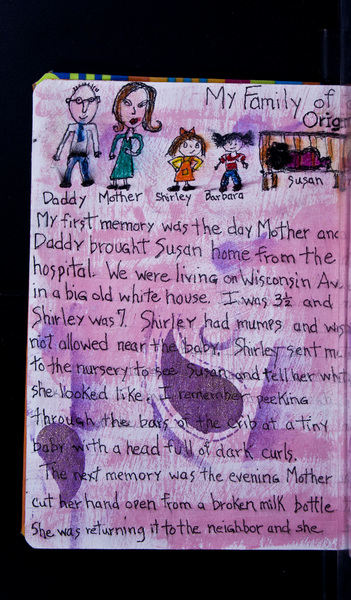 My Family of
Orig
Daddy Mother Shirley Barbara Susan
My first memory was the day Mother and
Daddy brought Susan home from the
hospital. We were living on Wisconsin Av.
in a big old white house. I was 3½ and
Shirley was 7. Shirley had mumps and was
not allowed near the baby. Shirley sent me
to the nursery to see Susan and tell her wh
she looked like. I remember peeking
through the bars of the crib at a tiny
baby with a head full of dark curls.
The next memory was the evening Mother
cut her hand open from a broken milk bottle
She was returning it to the neighbor and she